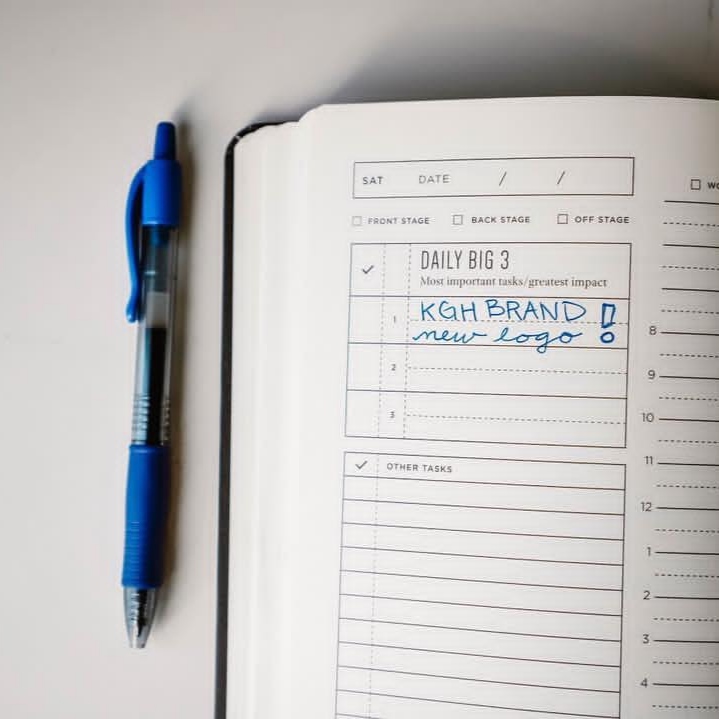 SAT DATE / /
FRONT STAGE BACK STAGE OFF STAGE
DAILY BIG 3
Most important tasks/greatest impact
1 KGH BRAND !
new logo
2
3
OTHER TASKS
8
9
10
11
12
1
2
3
4